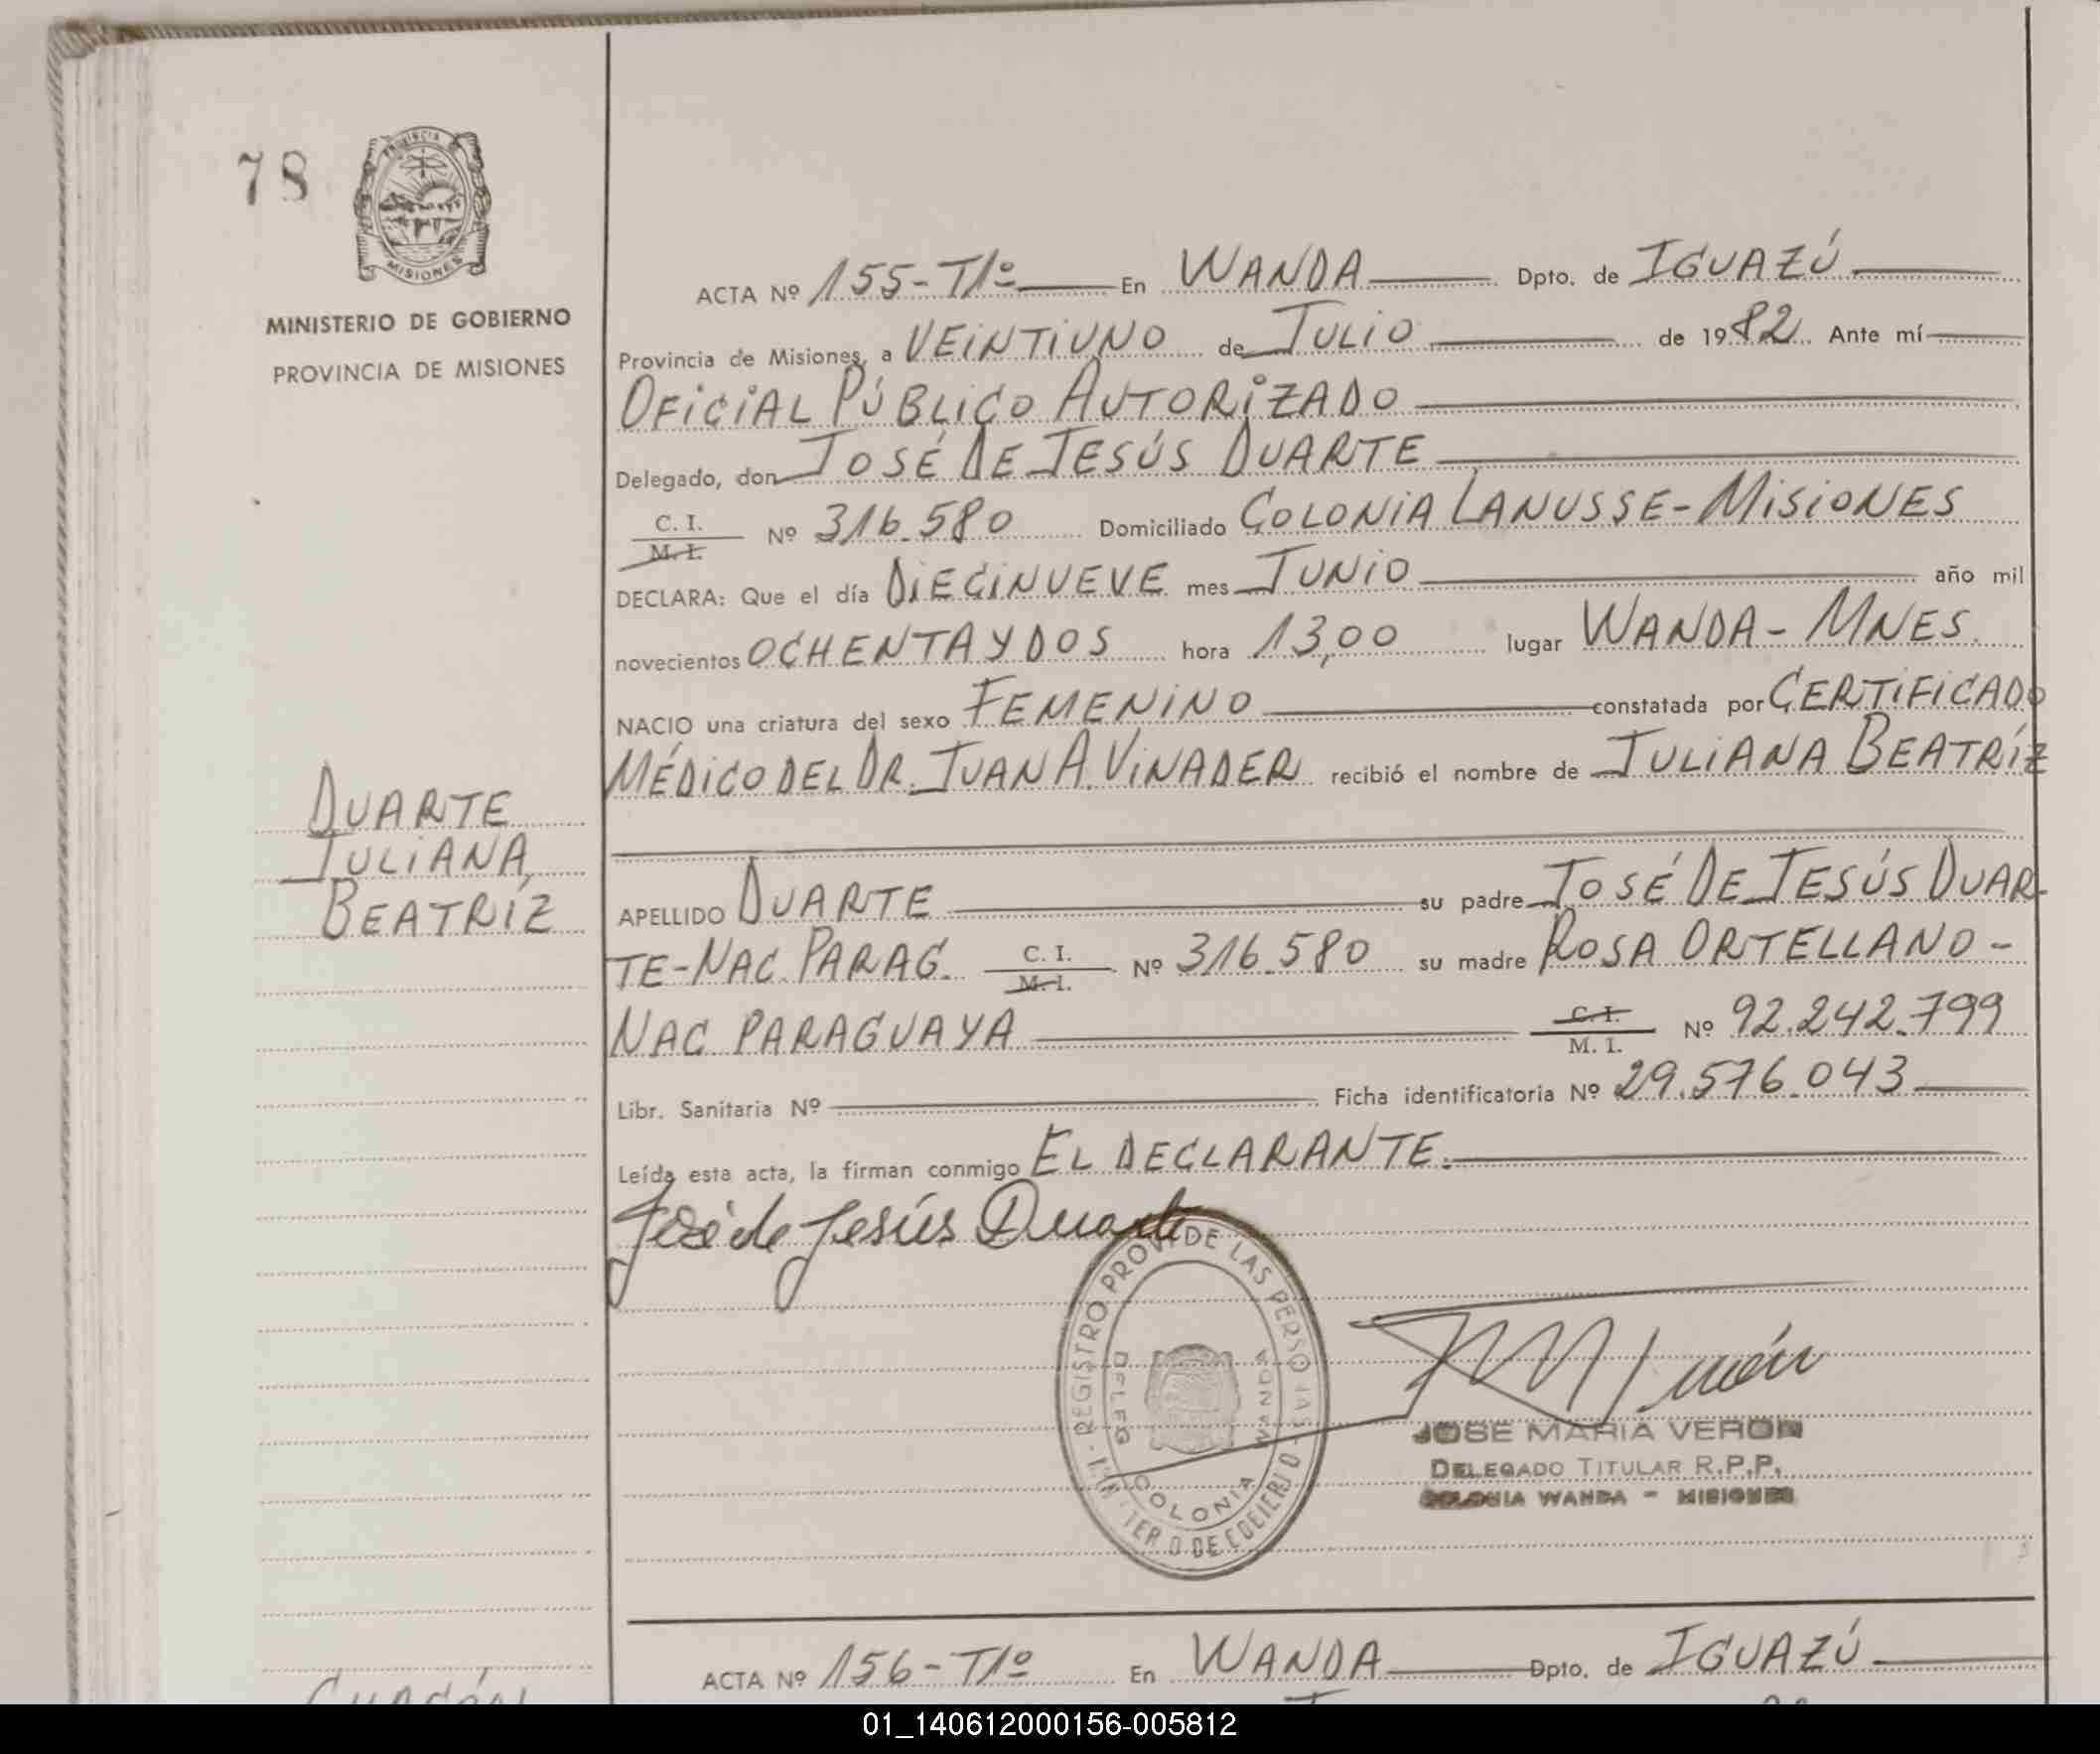 78
PROVINCIA
MISIONES
MINISTERIO DE GOBIERNO
PROVINCIA DE MISIONES
DUARTE
JULIANA,
BEATRÍZ
ACTA Nº 155-T1º En WANDA Dpto. de IGUAZÚ
Provincia de Misiones, a VEINTIUNO de JULIO de 1982. Ante mí
OFICIAL PÚBLICO AUTORIZADO
Delegado, don JOSÉ DE JESÚS DUARTE
C. I.
M. I. Nº 316.580 Domiciliado COLONIA LANUSSE-MISIONES
DECLARA: Que el día DIECINUEVE mes JUNIO año mil
novecientos OCHENTA Y DOS hora 13,00 lugar WANDA-MNES.
NACIO una criatura del sexo FEMENINO constatada por CERTIFICADO
MÉDICO DEL DR. JUAN A. VINADER recibió el nombre de JULIANA BEATRÍZ
APELLIDO DUARTE su padre JOSÉ DE JESÚS DUAR-
TE-NAC. PARAG. C. I. M. I. Nº 316.580 su madre ROSA ORTELLANO-
NAC. PARAGUAYA C. I. M. I. Nº 92.242.799
Libr. Sanitaria Nº Ficha identificatoria Nº 29.576.043
Leída esta acta, la firman conmigo EL DECLARANTE.
José de Jesús Duarte
REGISTRO PROV. DE LAS PERSONAS
DELEG
COLONIA WANDA
JOSE MARIA VERON
DELEGADO TITULAR R.P.P.
COLONIA WANDA - MISIONES
ACTA Nº 156-T1º En WANDA Dpto. de IGUAZÚ
01_140612000156-005812